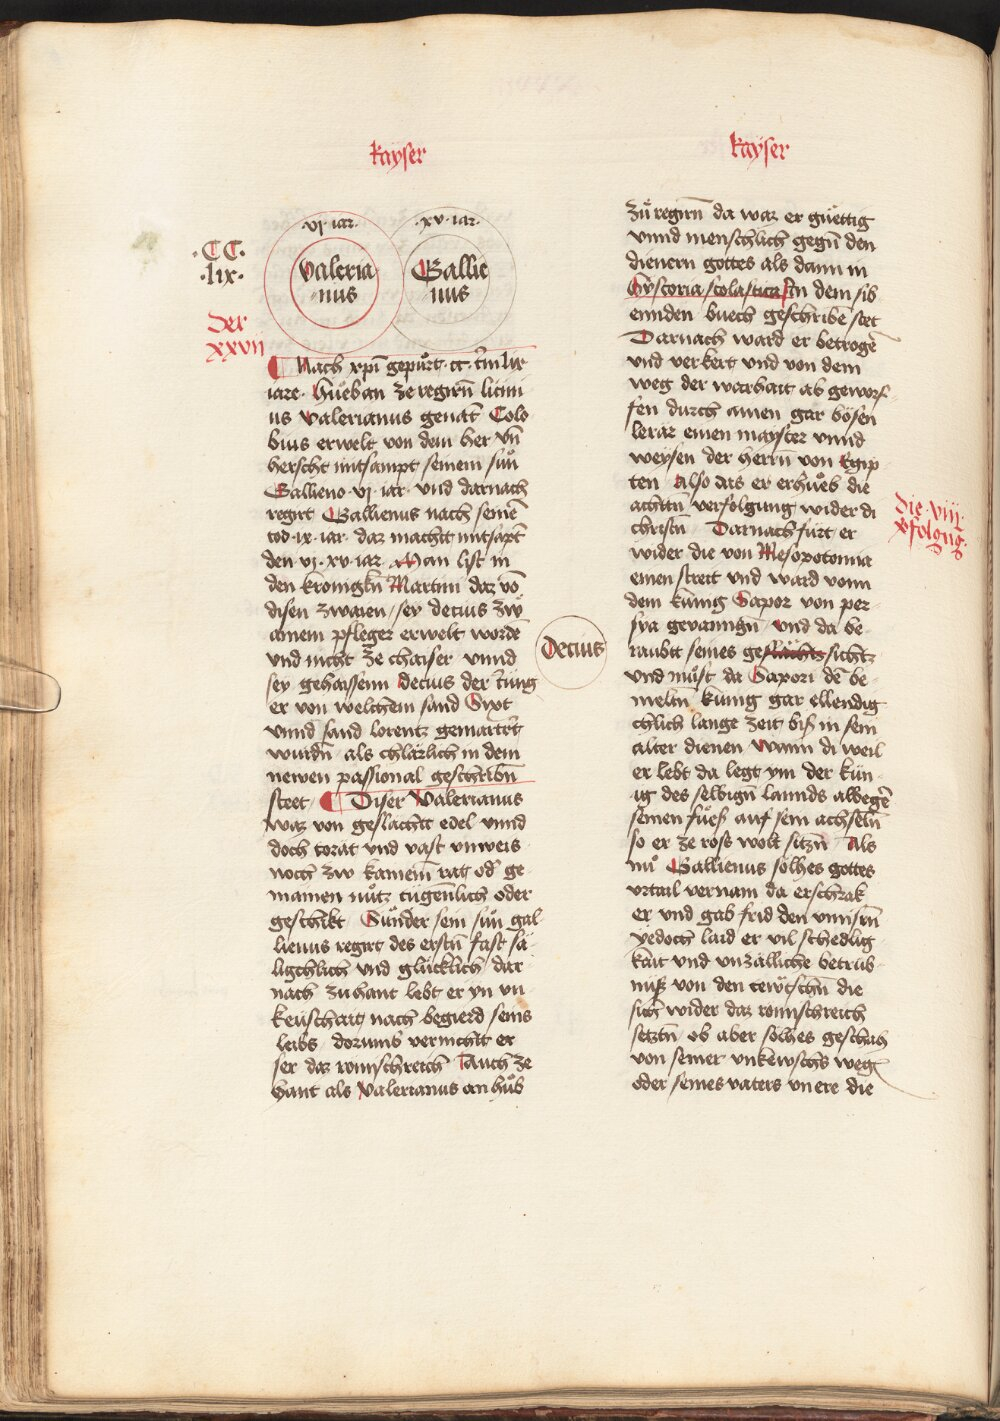 kayser
kayser
·CC·
·lix·
der
xxvii
·vj· iar·
Valeria
nus
·xv· iar·
Gallie
nus
Nach xpī gepuͦrt · cc · līm lix
iare · Hueb an ze regirn̄ licini
us Valerianus genāt Colo
bius erwelt von dem her vn̄
herscht mitsampt seinem suͦn
Gallieno · vj · iar · vnd darnach
regirt Gallienus nach seinē
tod · ix · iar · daz macht mitsāpt
den vj · xv · iar · Man list in
den kronigkn̄ Martini daz vō
disen zwaien / sey decius zw
ainem pfleger erwelt wordē
vnd nicht ze chaiser · vnnd
sey gehaissenn Decius der iūng
er von welchem sand Sixt
vnnd sand lorentz gemartert
wurdn̄ als chlärlich in dem
newen passional geschribn̄
steet / Diser Valerianus
waz von geslächtt edel vnnd
doch torat vnd vast vnweis
noch zw kainem rat od' ge
mainen nuͦtz tugenlich oder
geschikt Suͦnder sein suͦn gal
lienus regirt des erstn̄ fast sä
ligchlich vnd glücklich / dar
nach zu hant lebt er yn vn
keuschait / nach begierd seins
leibs dorumb vernicht er
ser daz romschreich Auch ze
hant als Valerianus an huͦb
Decius
zuͦ regirn̄ da waz er guͤettig
vnnd menschlich gegn̄ den
dienern gottes als dann in
Hystoria scolastica / in dem sib
ennden buech geschribē stet
Darnach ward er betrogē
vnd verkert vnd von dem
weg der warhait ab geworf
fen durch ainen gar bösen
lerar einen mayster vnnd
weysen der herrn̄ von Egip
ten Also das er erhueb die
achttn̄ verfolgung wider di
christn̄ Darnach fürt er
wider die von Mesopotonia
einen streit vnd ward vonn
dem künig Sapor von per
sya gevanngn̄ vnd da be
raubtt seines geslächtz sichtz
vnd muͦst da Sapori dē be
meltn̄ künig gar ellendig
chlich lange zeit biß in sein
alter dienen wann di weil
er lebt da legt ym der kün
ig des selbign̄ lannds albegē
seinen fueß auf sein achseln̄
so er ze ross wolt sitzn̄ Als
nuͦ Gallienus solhes gottes
vrtail vernam da erschrak
er vnd gab frid den vnnsrn̄
yedoch laid er vil schedlig
kait vnd vnzälliche betrüb
nuß von den tewtschn̄ die
sich wider daz romschreich
setztn̄ ob aber solhes geschah
von seiner vnkewschs weg
oder seines vaters vn ere die
die · viij ·
v̄folgūg ·